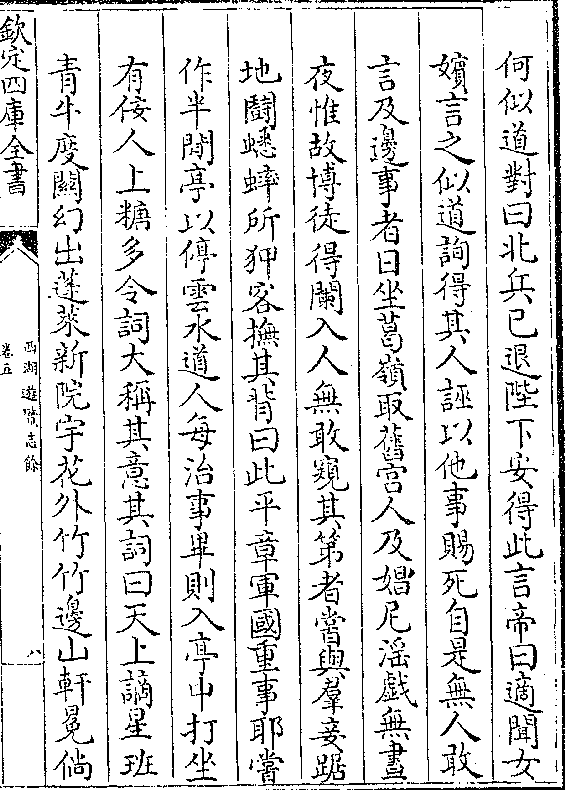 何似道對曰北兵已退陛下安得此言帝曰適聞女
嬪言之似道詢得其人誣以他事賜死自是無人敢
言及邊事者日坐葛嶺取舊宫人及娼尼滛戲無晝
夜惟故博徒得闌入人無敢窺其第者嘗與羣妾踞
地鬬蟋蟀所狎客撫其背曰此平章軍國重事耶嘗
作半閒亭以停雲水道人每治事畢則入亭中打坐
有佞人上糖多令詞大稱其意其詞曰天上謫星班
青牛度關幻出蓬萊新院宇花外竹竹邊山軒冕倘
欽定四庫全書
西湖遊覽志餘
卷五
八